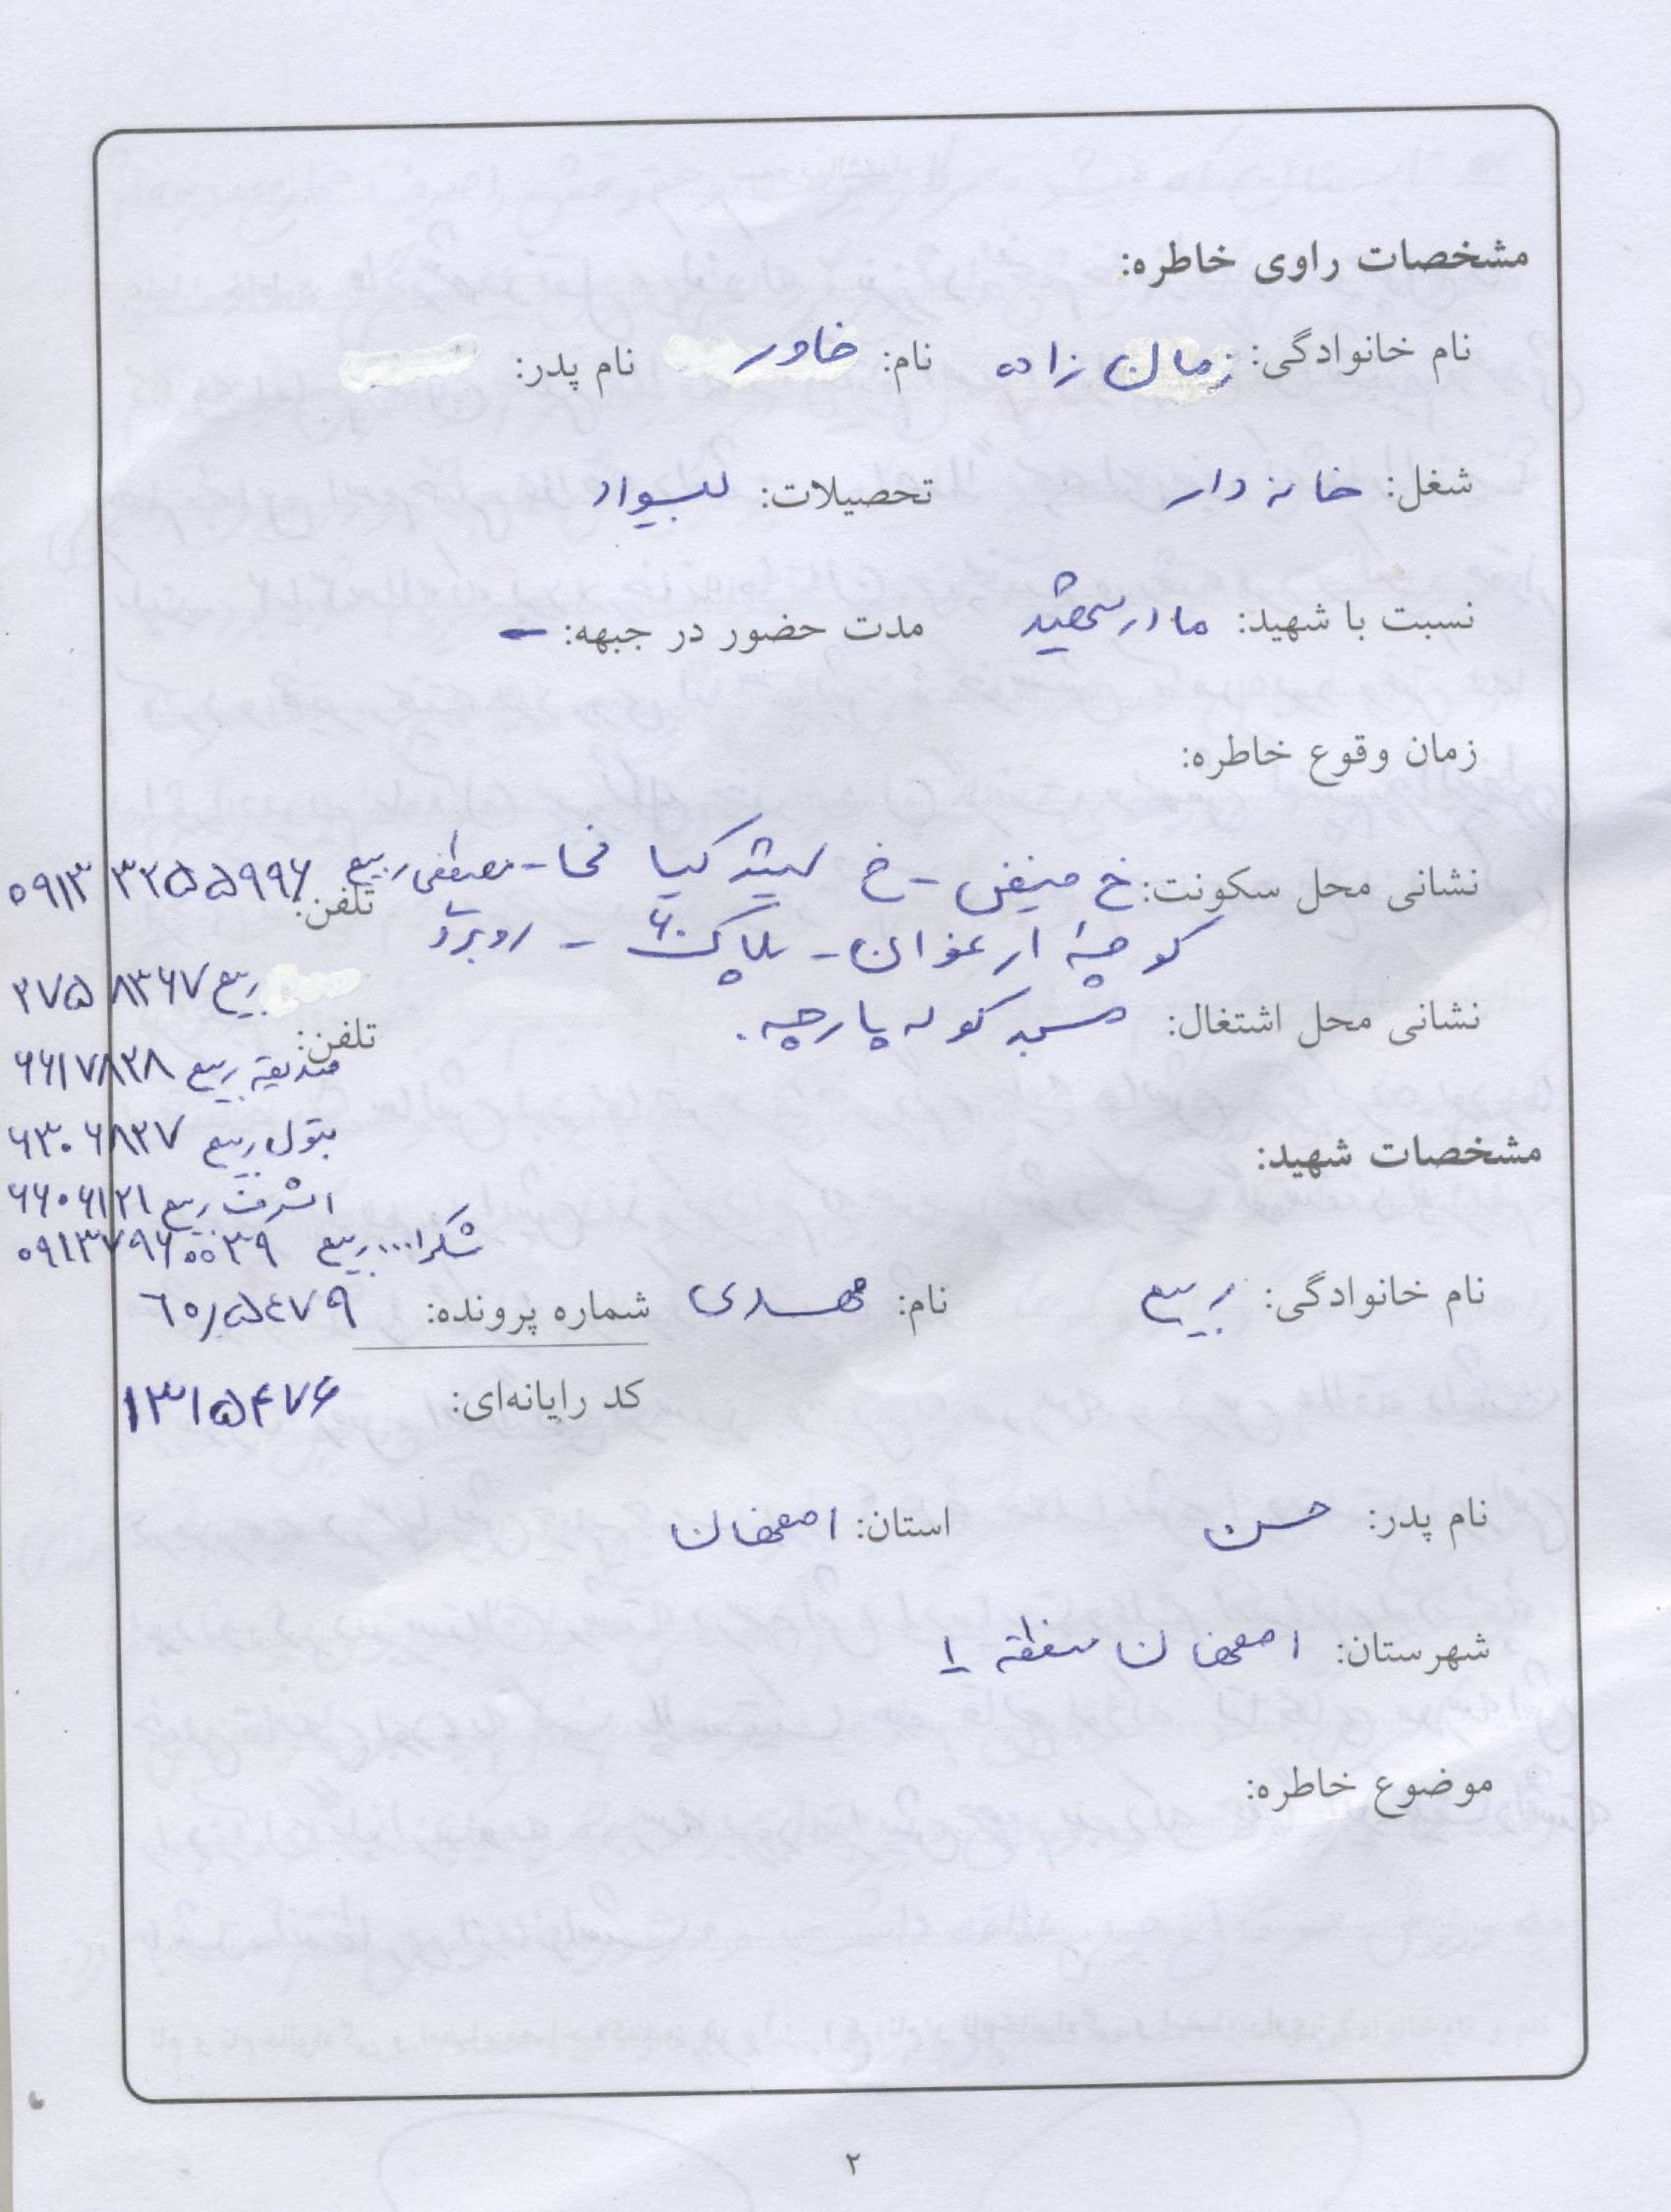 مشخصات راوی خاطره:
نام خانوادگی: زمان زاده نام: خاور نام پدر:
شغل: خانه دار تحصیلات: بیسواد
نسبت با شهید: مادر شهید مدت حضور در جبهه: -
زمان وقوع خاطره:
نشانی محل سکونت: خ - خ - مصطفی ربیع تلفن: ۰۹۱۳ ۳۲۵۵۹۹۶
کوچه ارغوان - پلاک ۶۰ - روبروی
ربیع ۲۷۵۸۳۶۷
نشانی محل اشتغال: مسجد کوله پارچه. تلفن:
صدیقه ربیع ۶۶۱۷۸۲۸
بتول ربیع ۶۳۰۶۸۲۷
مشخصات شهید:
اشرف ربیع ۶۶۰۶۱۲۱
شکرا... ربیع ۰۹۱۳۷۹۶۰۰۳۹
نام خانوادگی: ربیع نام: مهدی شماره پرونده: ٦٠/٥٤٧٩
کد رایانه‌ای: ۱۳۱۵۴۷۶
نام پدر: حسن استان: اصفهان
شهرستان: اصفهان منطقه ۱
موضوع خاطره:
۲